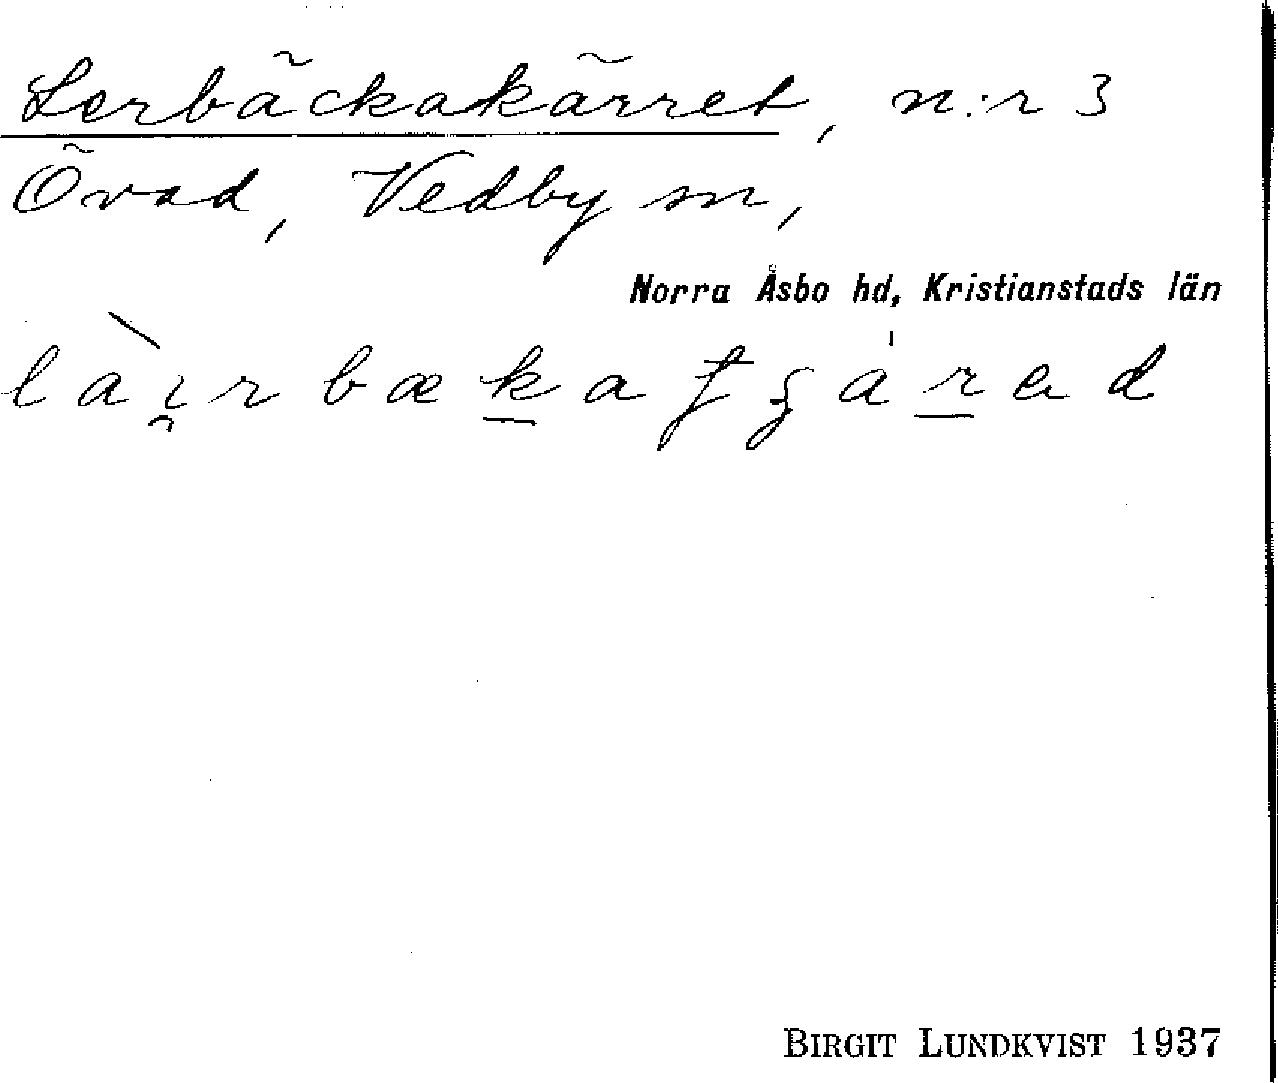 Lerbäckakärret, n:r 3
Övad, Vedby sn,
Norra Åsbo hd, Kristianstads län
BIRGIT LUNDKVIST 1937